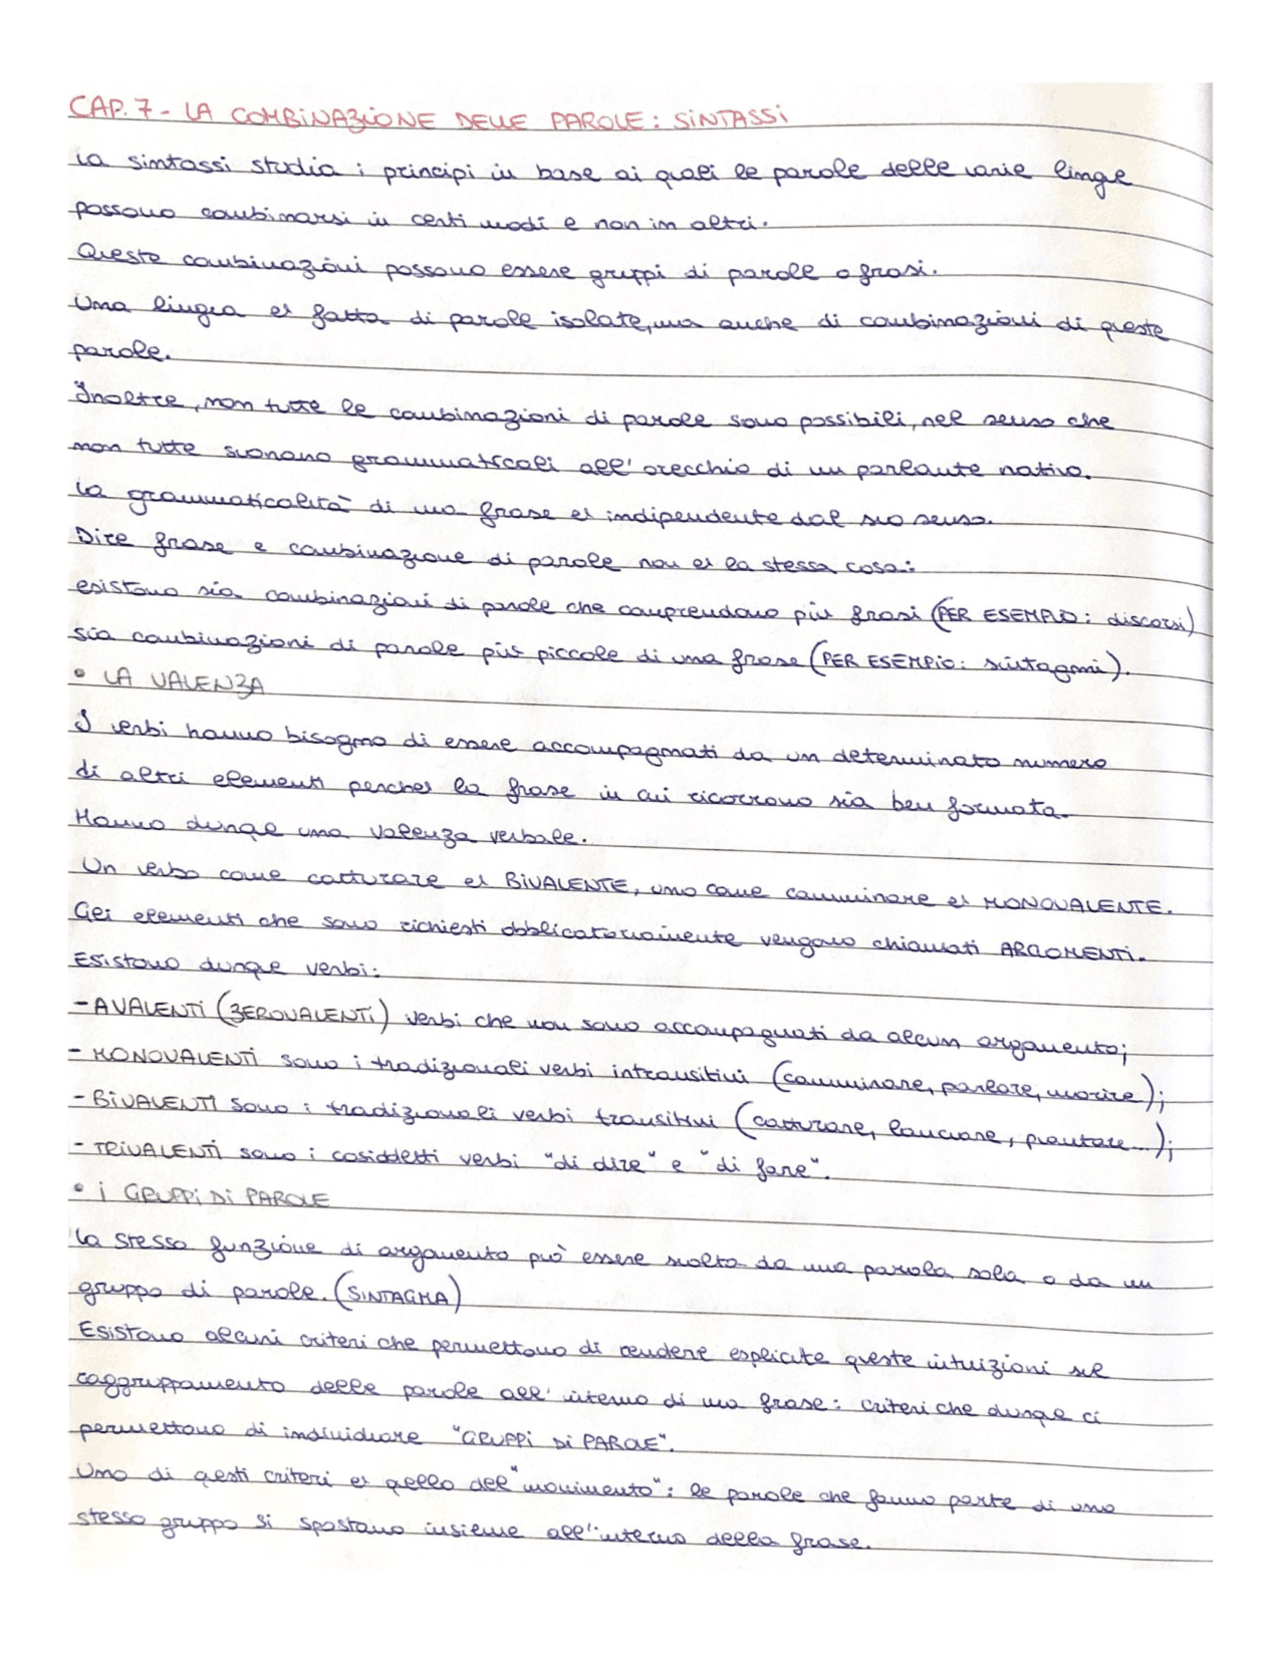 CAP. 7 - LA COMBINAZIONE DELLE PAROLE: SINTASSI
La sintassi studia i principi in base ai quali le parole delle varie lingue
possono combinarsi in certi modi e non in altri.
Queste combinazioni possono essere gruppi di parole o frasi.
Una lingua è fatta di parole isolate, ma anche di combinazioni di queste
parole.
Inoltre, non tutte le combinazioni di parole sono possibili, nel senso che
non tutte suonano grammaticali all'orecchio di un parlante nativo.
La grammaticalità di una frase è indipendente dal suo senso.
Dire frase e combinazione di parole non è la stessa cosa:
esistono sia combinazioni di parole che comprendono più frasi (PER ESEMPIO: discorsi)
sia combinazioni di parole più piccole di una frase (PER ESEMPIO: sintagmi).
• LA VALENZA
I verbi hanno bisogno di essere accompagnati da un determinato numero
di altri elementi perché la frase in cui ricorrono sia ben formata.
Hanno dunque una valenza verbale.
Un verbo come catturare è BIVALENTE, uno come camminare è MONOVALENTE.
Gli elementi che sono richiesti obbligatoriamente vengono chiamati ARGOMENTI.
Esistono dunque verbi:
- AVALENTI (ZEROVALENTI) verbi che non sono accompagnati da alcun argomento;
- MONOVALENTI sono i tradizionali verbi intransitivi (camminare, parlare, morire);
- BIVALENTI sono i tradizionali verbi transitivi (catturare, lanciare, piantare...);
- TRIVALENTI sono i cosiddetti verbi "di dire" e "di fare".
• i GRUPPI DI PAROLE
La stessa funzione di argomento può essere svolta da una parola sola o da un
gruppo di parole. (SINTAGMA)
Esistono alcuni criteri che permettono di rendere esplicite queste intuizioni sul
raggruppamento delle parole all'interno di una frase: criteri che dunque ci
permettono di individuare "GRUPPI DI PAROLE".
Uno di questi criteri è quello del "movimento": le parole che fanno parte di uno
stesso gruppo si spostano insieme all'interno della frase.